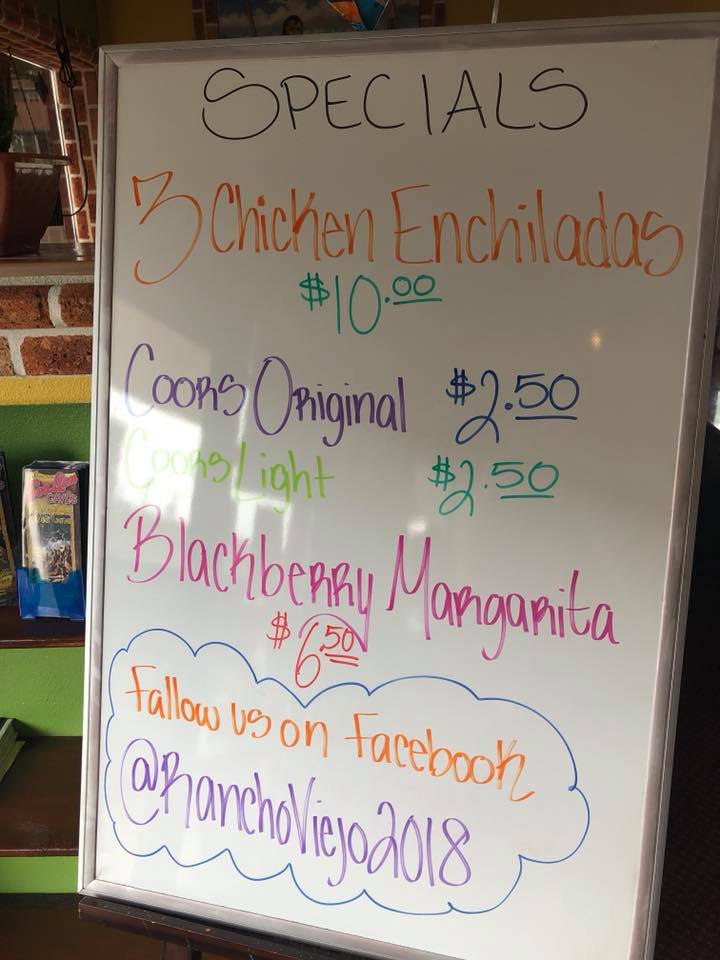 SPECIALS
3 Chicken Enchiladas
$10.00
Coors Original $2.50
Coors Light $2.50
Blackberry Margarita
$6.50
Fallow us on Facebook
@RanchoViejo2018